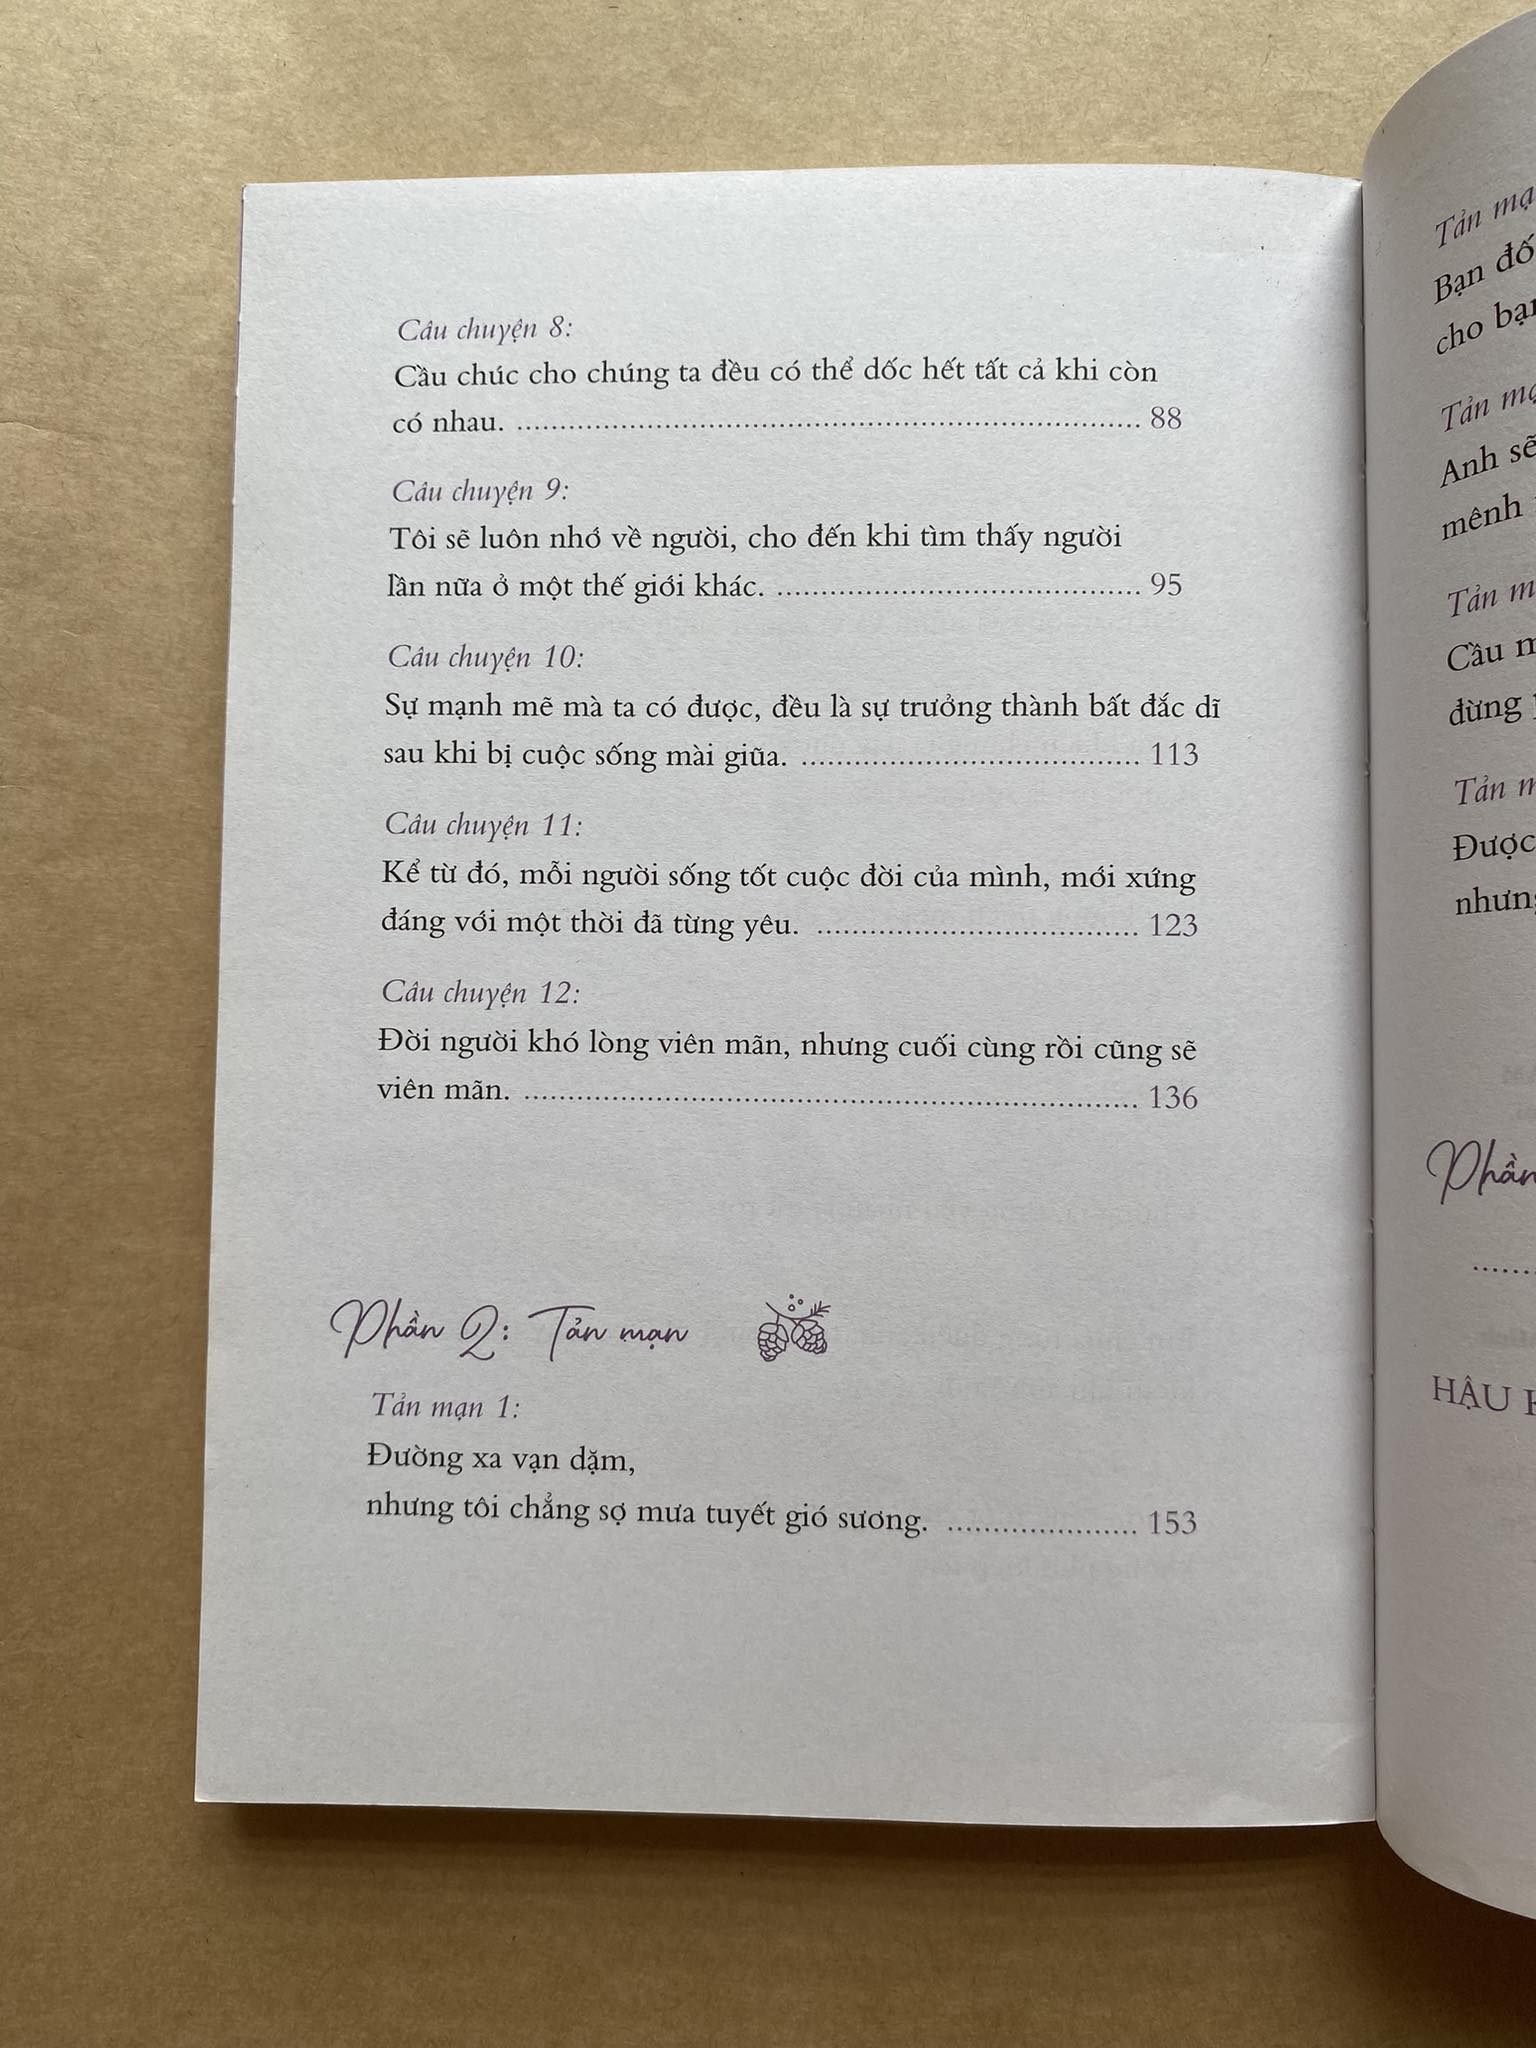 Câu chuyện 8:
Cầu chúc cho chúng ta đều có thể dốc hết tất cả khi còn
có nhau. ........................................................................ 88
Câu chuyện 9:
Tôi sẽ luôn nhớ về người, cho đến khi tìm thấy người
lần nữa ở một thế giới khác. .......................................... 95
Câu chuyện 10:
Sự mạnh mẽ mà ta có được, đều là sự trưởng thành bất đắc dĩ
sau khi bị cuộc sống mài giũa. ....................................... 113
Câu chuyện 11:
Kể từ đó, mỗi người sống tốt cuộc đời của mình, mới xứng
đáng với một thời đã từng yêu. ..................................... 123
Câu chuyện 12:
Đời người khó lòng viên mãn, nhưng cuối cùng rồi cũng sẽ
viên mãn. ....................................................................... 136
Phần 2: Tản mạn
Tản mạn 1:
Đường xa vạn dặm,
nhưng tôi chẳng sợ mưa tuyết gió sương. ...................... 153
Tản
Bạn
cho
Tản
Anh sẽ
mênh
Tản
Cầu
đừng
Tản
Được
nhưng
Phần
HẬU